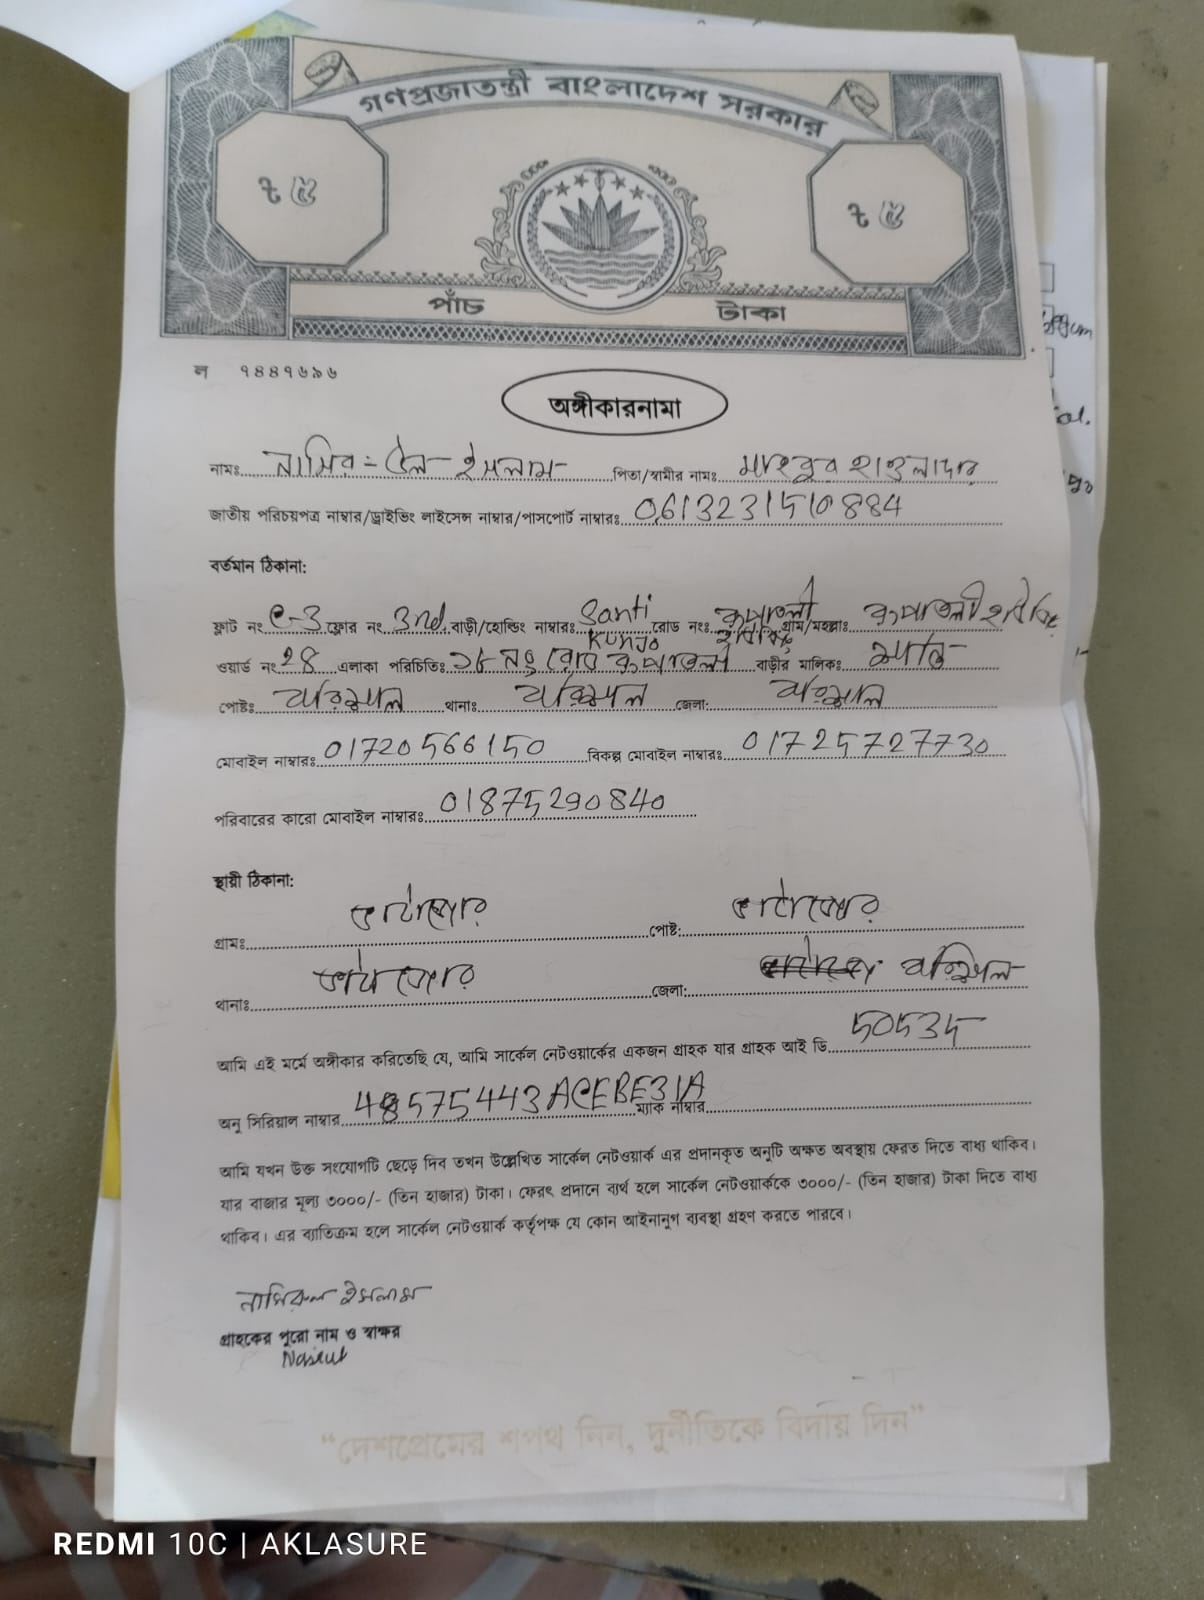 গণপ্রজাতন্ত্রী বাংলাদেশ সরকার
৳ ৫
৳ ৫
পাঁচ টাকা
ল ৭৪৪৭৬৯৬
অঙ্গীকারনামা
নামঃ নাসির-উল-ইসলাম পিতা/স্বামীর নামঃ হাওলাদার
জাতীয় পরিচয়পত্র নাম্বার/ড্রাইভিং লাইসেন্স নাম্বার/পাসপোর্ট নাম্বারঃ 0613231510884
বর্তমান ঠিকানা:
ফ্লাট নং e-3 ফ্লোর নং 3nd. বাড়ী/হোল্ডিং নাম্বারঃ Santi Kunjo রোড নং: রুপাতলী হাউজিং গ্রাম/মহল্লাঃ রুপাতলী হাউজিং
ওয়ার্ড নং 28 এলাকা পরিচিতিঃ নং রোড রুপাতলী বাড়ীর মালিকঃ
পোষ্টঃ বরিশাল থানাঃ বরিশাল জেলা: বরিশাল
মোবাইল নাম্বারঃ 01720566150 বিকল্প মোবাইল নাম্বারঃ 01725727730
পরিবারের কারো মোবাইল নাম্বারঃ 01875290840
স্থায়ী ঠিকানা:
গ্রামঃ বাটাজোর পোষ্ট: বাটাজোর
থানাঃ বাটাজোর জেলা: বরিশাল
আমি এই মর্মে অঙ্গীকার করিতেছি যে, আমি সার্কেল নেটওয়ার্কের একজন গ্রাহক যার গ্রাহক আই ডি 50535
অনু সিরিয়াল নাম্বার 48575443ACEBE31A ম্যাক নাম্বার
আমি যখন উক্ত সংযোগটি ছেড়ে দিব তখন উল্লেখিত সার্কেল নেটওয়ার্ক এর প্রদানকৃত অনুটি অক্ষত অবস্থায় ফেরত দিতে বাধ্য থাকিব।
যার বাজার মূল্য ৩০০০/- (তিন হাজার) টাকা। ফেরৎ প্রদানে ব্যর্থ হলে সার্কেল নেটওয়ার্ককে ৩০০০/- (তিন হাজার) টাকা দিতে বাধ্য
থাকিব। এর ব্যতিক্রম হলে সার্কেল নেটওয়ার্ক কর্তৃপক্ষ যে কোন আইনানুগ ব্যবস্থা গ্রহণ করতে পারবে।
নাসিরুল ইসলাম
গ্রাহকের পুরো নাম ও স্বাক্ষর
Nasrul
“দেশপ্রেমের শপথ নিন, দুর্নীতিকে বিদায় দিন”
REDMI 10C | AKLASURE